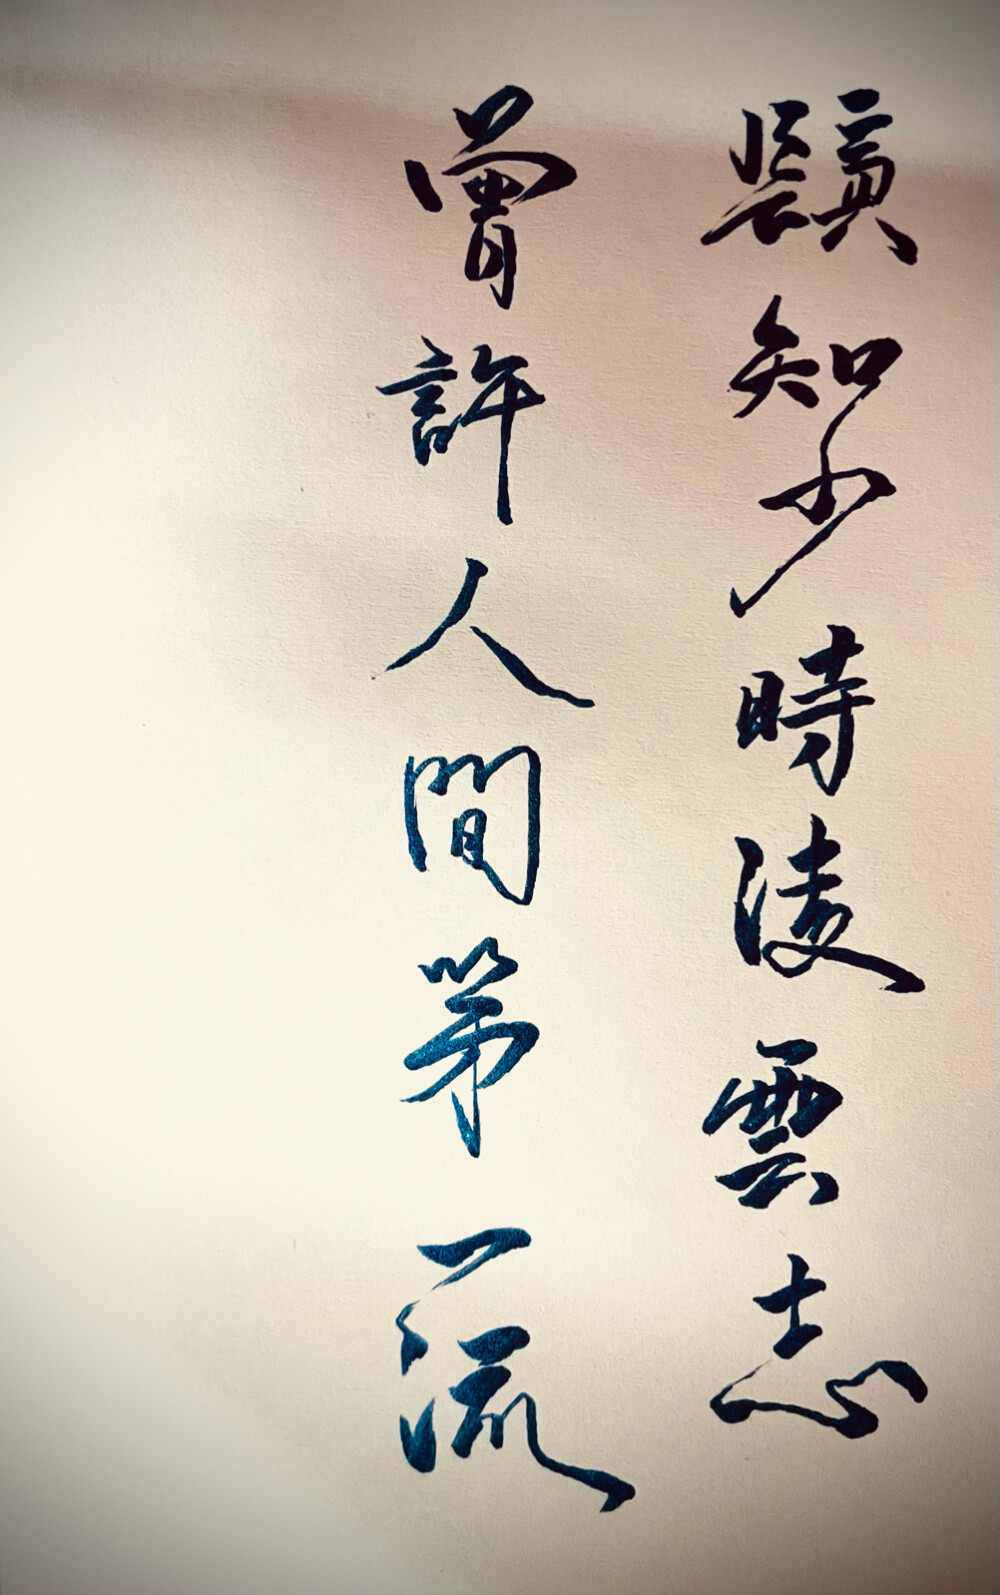 知少時凌雲志
曾許人間第一流